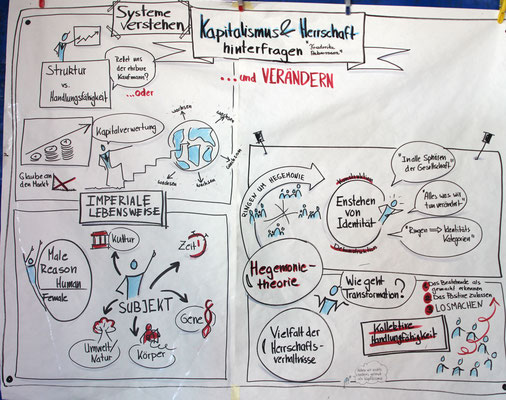 Systeme
verstehen
Kapitalismus & Herrschaft
hinterfragen
"Friederike
...und VERÄNDERN
Rettet uns
der ehrbare
Kaufmann?
...oder
Struktur
vs.
Handlungsfähigkeit
Kapitalverwertung
Glaube an
den Markt
wachsen
wachsen
wachsen
wachsen
wachsen
IMPERIALE
LEBENSWEISE
Male
Reason
Human
Female
Kultur
Zeit
SUBJEKT
Gene
Umwelt/
Natur
Körper
RINGEN UM HEGEMONIE
Enstehen
von
Identität
"In alle Sphären
der Gesellschaft"
"Alles was wir
tun verändert"
"Ringen => Identitäts
Kategorien"
Hegemonie-
theorie
Wie geht
Transformation?
1 Das Bestehende als
gemacht erkennen
2 Das Positive zulassen
3 LOSMACHEN
Vielfalt der
Herrschafts-
verhältnisse
Kollektive
Handlungsfähigkeit